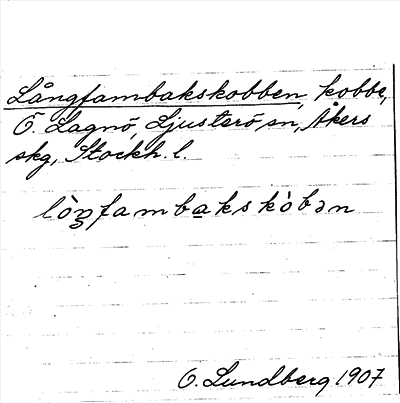 Långfambakskobben, kobbe,
Ö. Lagnö, Ljusterö sn, Åkers
skg, Stockh. l.
lòŋfambakskòbən
O. Lundberg 1907